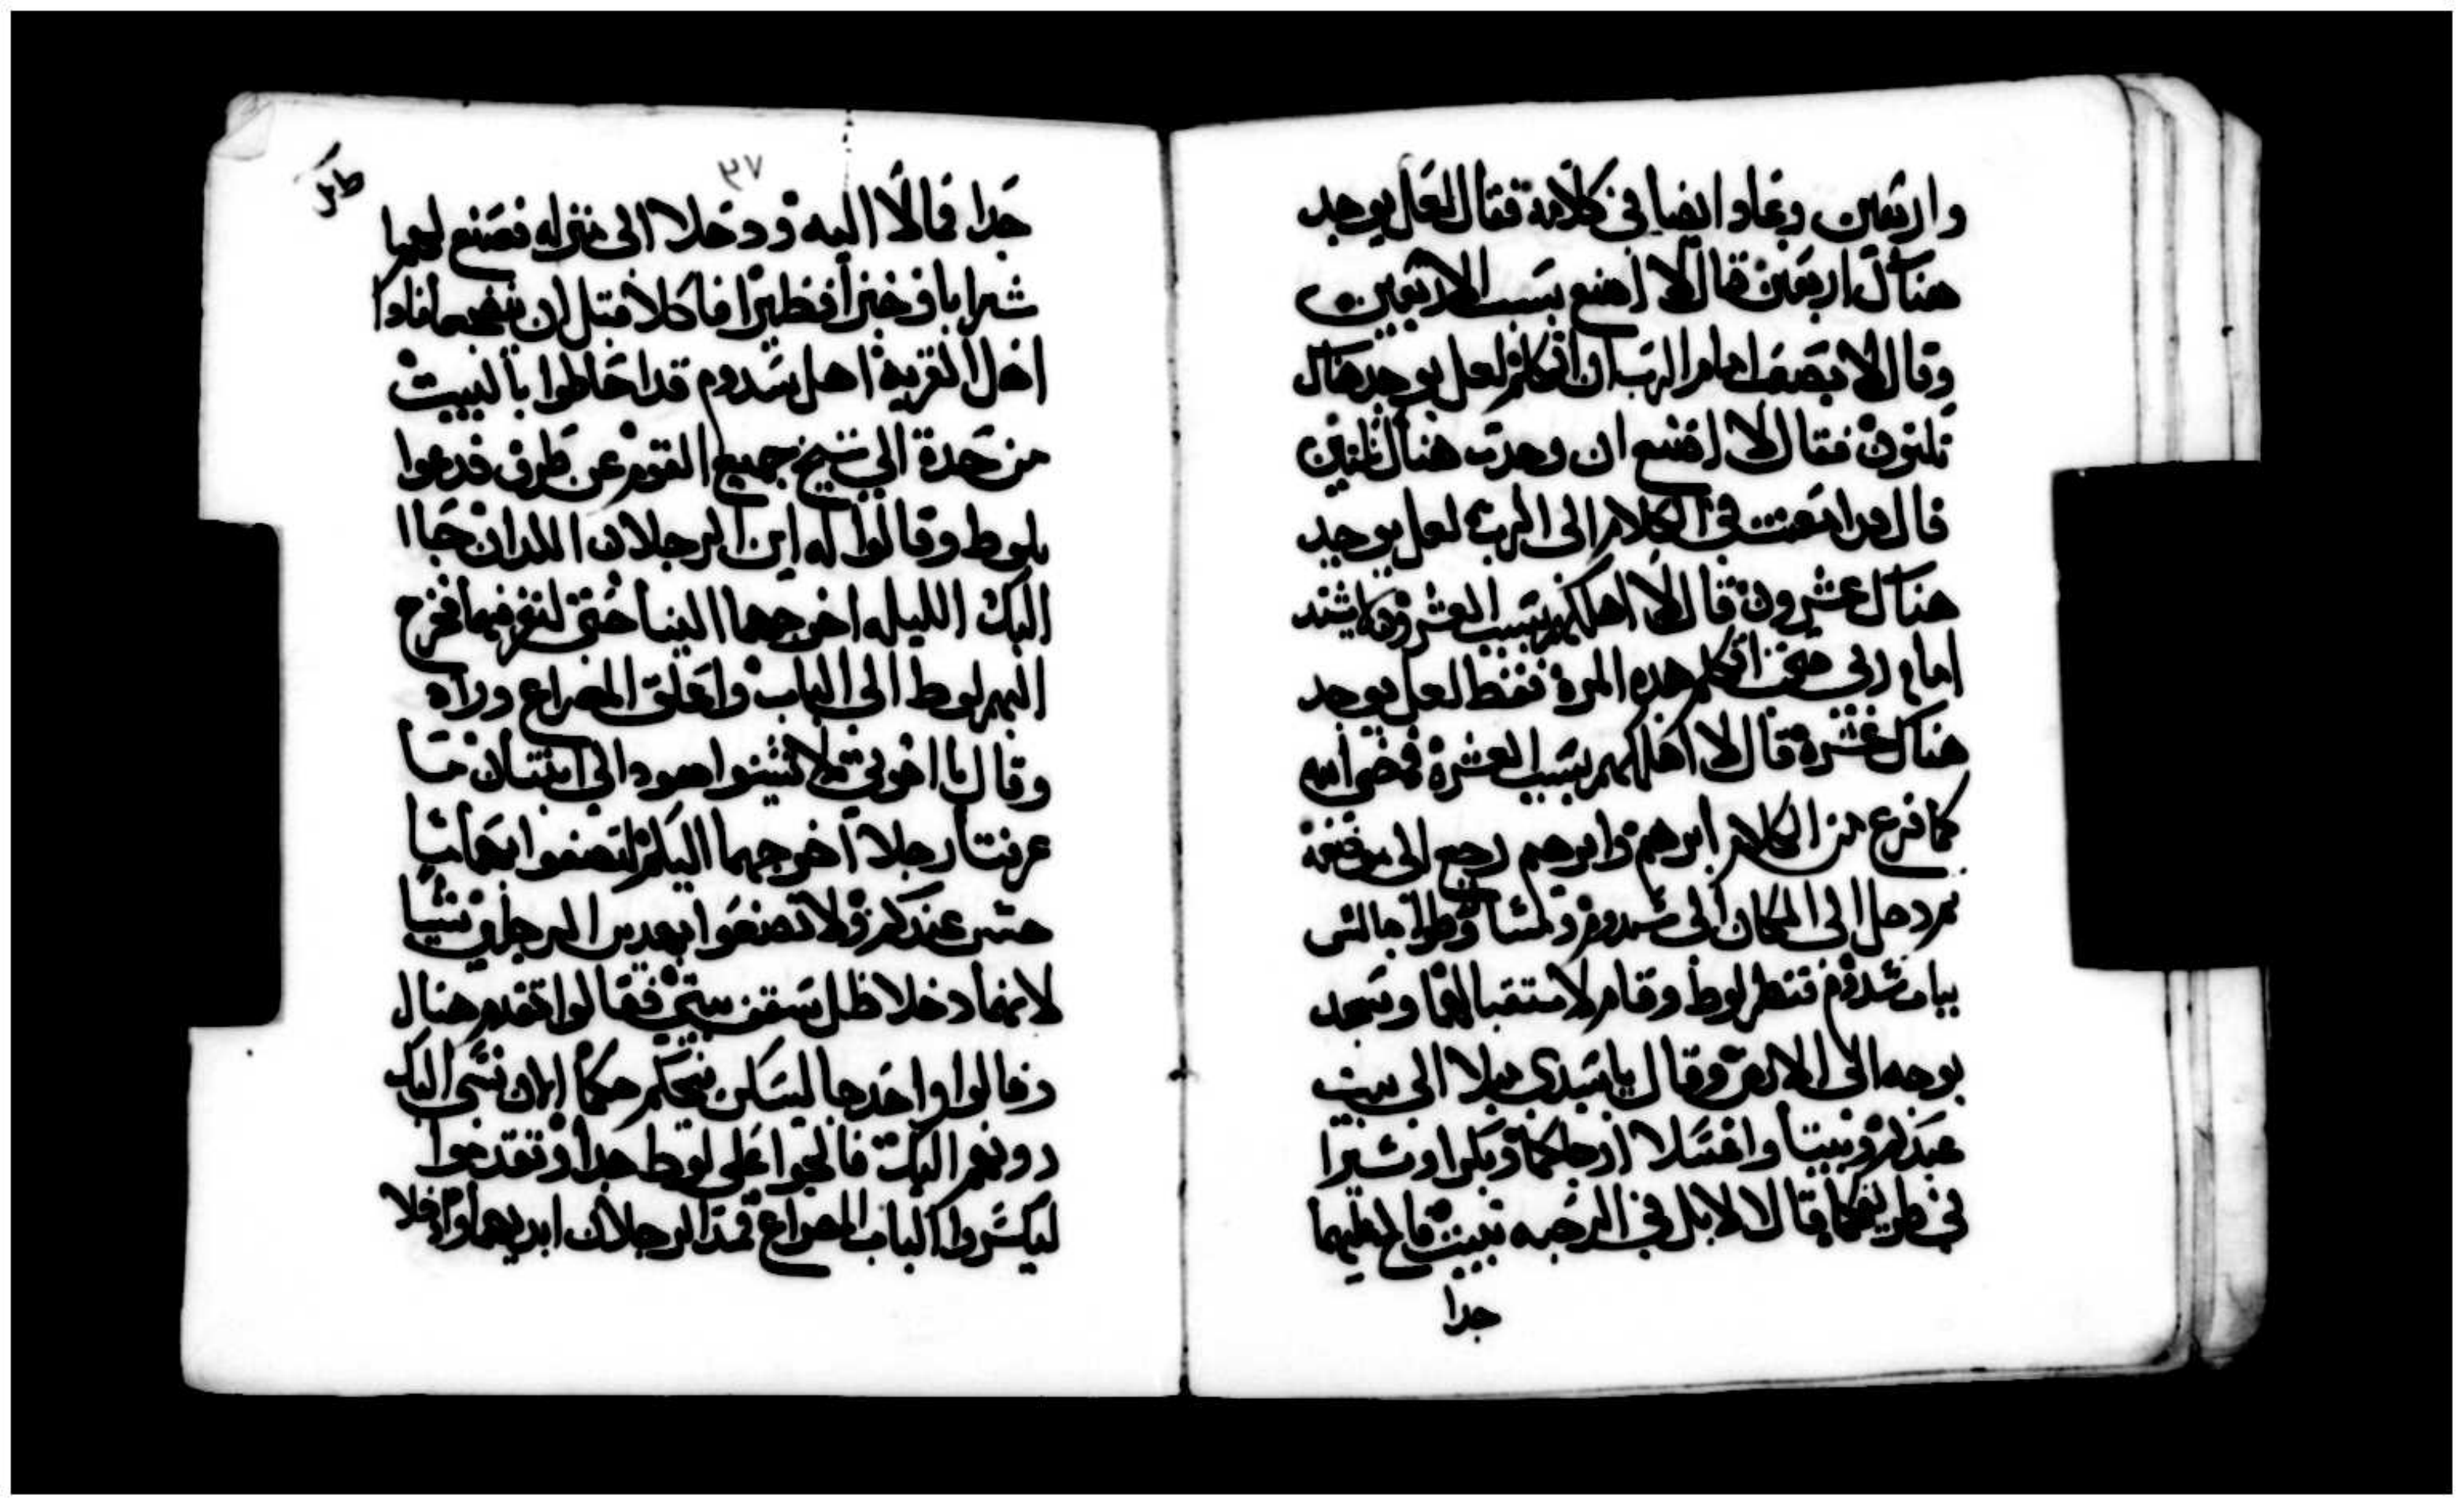 واربعين وعاد ايضا في كلامه فقال لعل يوجد
هناك اربعين قال لا اصنع بسبب الاربعين
وقال لا يصعب امام الرب ان اتكلم لعل يوجد هناك
ثلثون فقال لا اصنع ان وجدت هناك ثلثين
قال قد امعنت في الكلام الى الرب لعل يوجد
هناك عشرون قال لا اهلكهم بسبب العشرون
امام ربي حتى اتكلم هذه المرة فقط لعل يوجد
هناك عشرة قال لا اهلكهم بسبب العشرة فمضى الله
كما فرغ من الكلام ابرهيم وابرهيم رجع الى موضعه
ثم دخل الى المكان الى سدوم ولوط جالس
بباب سدوم فنظر لوط وقام لاستقبالهما وسجد
بوجهه الى الارض وقال يا سيدي ميلا الى بيت
عبدكم وبيتا واغسلا ارجلكما وبكرا وسيرا
في طريقكما فقالا لا بل في الرحبه نبيت فالح عليهما
جدا
٣٧
جدا فمالا اليه ودخلا الى منزله فصنع لهما
شرابا وخبزا فطيرا فاكلا قبل ان
اهل القرية اهل سدوم قد احاطوا بالبيت
من حدة الى شيخ جميع القوم عن طرف فدعوا
بلوط وقالوا له اين الرجلان اللدان جاا
اليك الليله اخرجهما الينا حتى فخرج
اليهم لوط الى الباب واغلق المصراع وراه
وقال يا اخوتي لا هودا لي ابنتان ما
عرفتا رجلا اخرجهما اليكم لتصنعوا بهما ما
حسن عندكم ولا تصنعوا بهدين الرجلين شيا
لانهما دخلا ظل سقف بيتي فقالوا تقدم هناك
وقالوا واحد جا ليسكن يحكم حكما الان نسى اليك
دونهم اليك فالحوا على لوط جدا وتقدموا
ليكسروا الباب المصراع فمد الرجلان ايديهما وادخلا